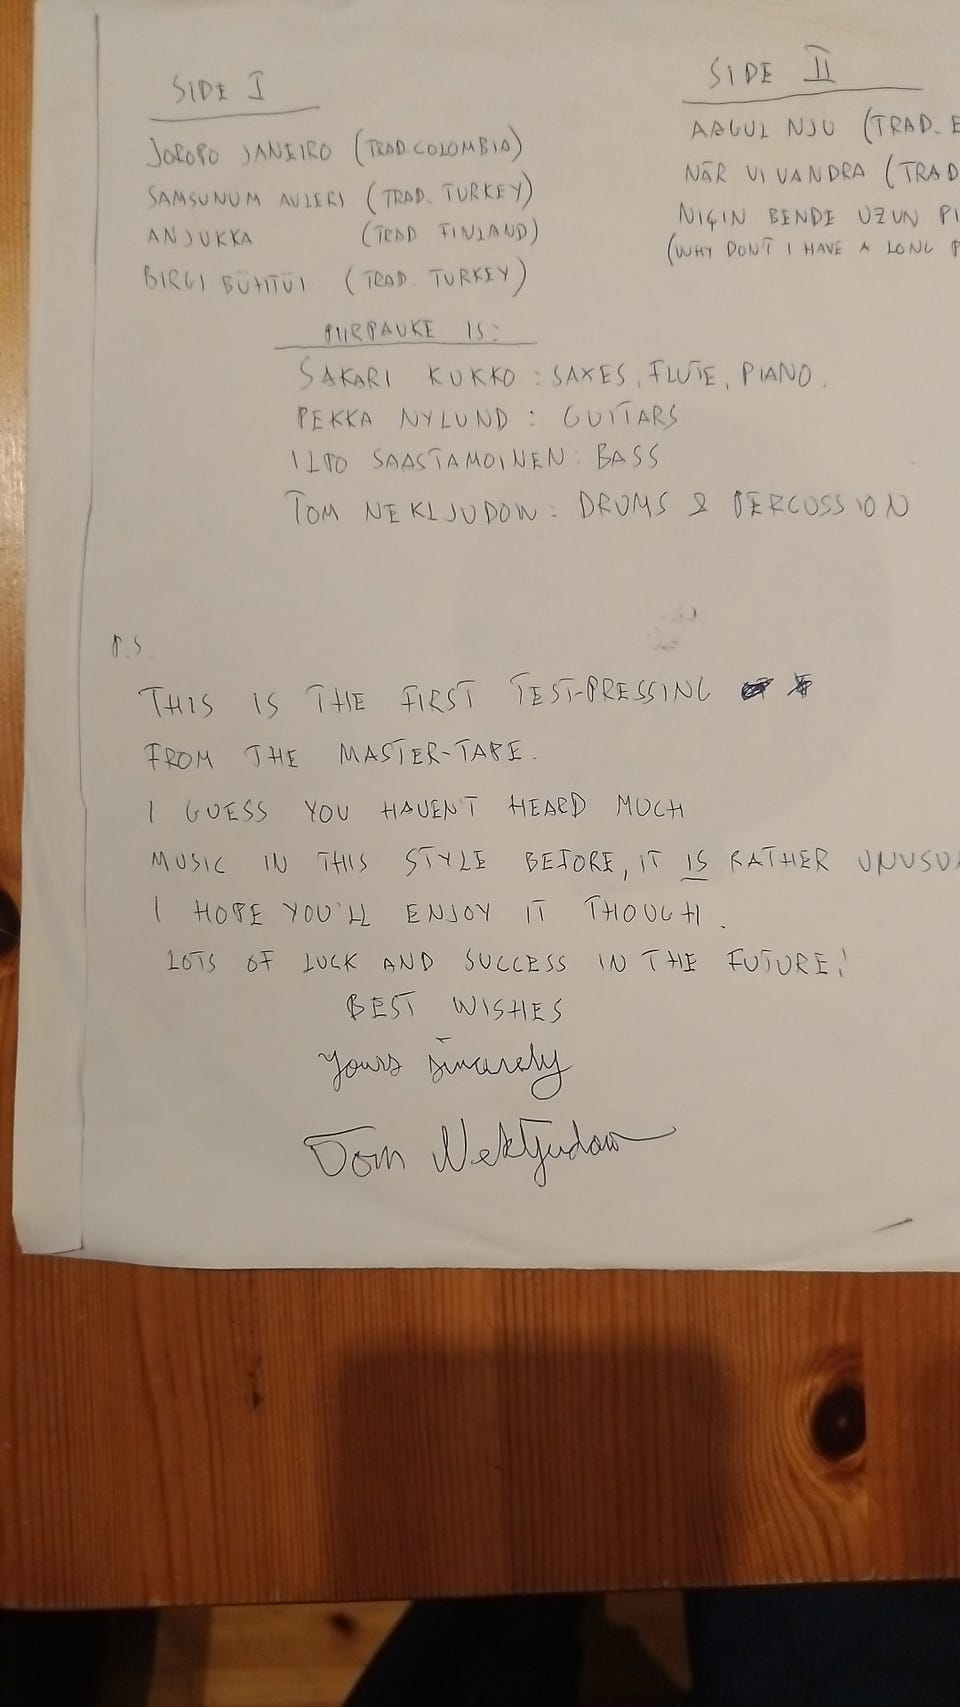 SIDE I
JOROPO JANEIRO (TRAD. COLOMBIA)
SAMSUNUM AVLERI (TRAD. TURKEY)
ANJUKKA (TRAD FINLAND)
BIRGI BÜHTÜI (TRAD. TURKEY)
SIDE II
AAGUL NJU (TRAD. E
NÄR VI VANDRA (TRAD
NIÇIN BENDE UZUN PI
(WHY DON'T I HAVE A LONG P
PIIRPAUKE IS:
SAKARI KUKKO: SAXES, FLUTE, PIANO,
PEKKA NYLUND: GUITARS
ILPO SAASTAMOINEN: BASS
TOM NEKLJUDOW: DRUMS & PERCUSSION
P.S.
THIS IS THE FIRST TEST-PRESSING
FROM THE MASTER-TAPE.
I GUESS YOU HAVEN'T HEARD MUCH
MUSIC IN THIS STYLE BEFORE, IT IS RATHER UNUSUA
I HOPE YOU'LL ENJOY IT THOUGH.
LOTS OF LUCK AND SUCCESS IN THE FUTURE!
BEST WISHES
Yours sincerely
Tom Nekljudow